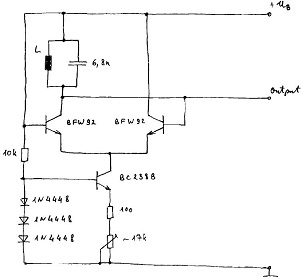 + UB
L
6,8n
Output
BFW92 BFW92
10k
BC238B
1N4448
1N4448
1N4448
100
~17k